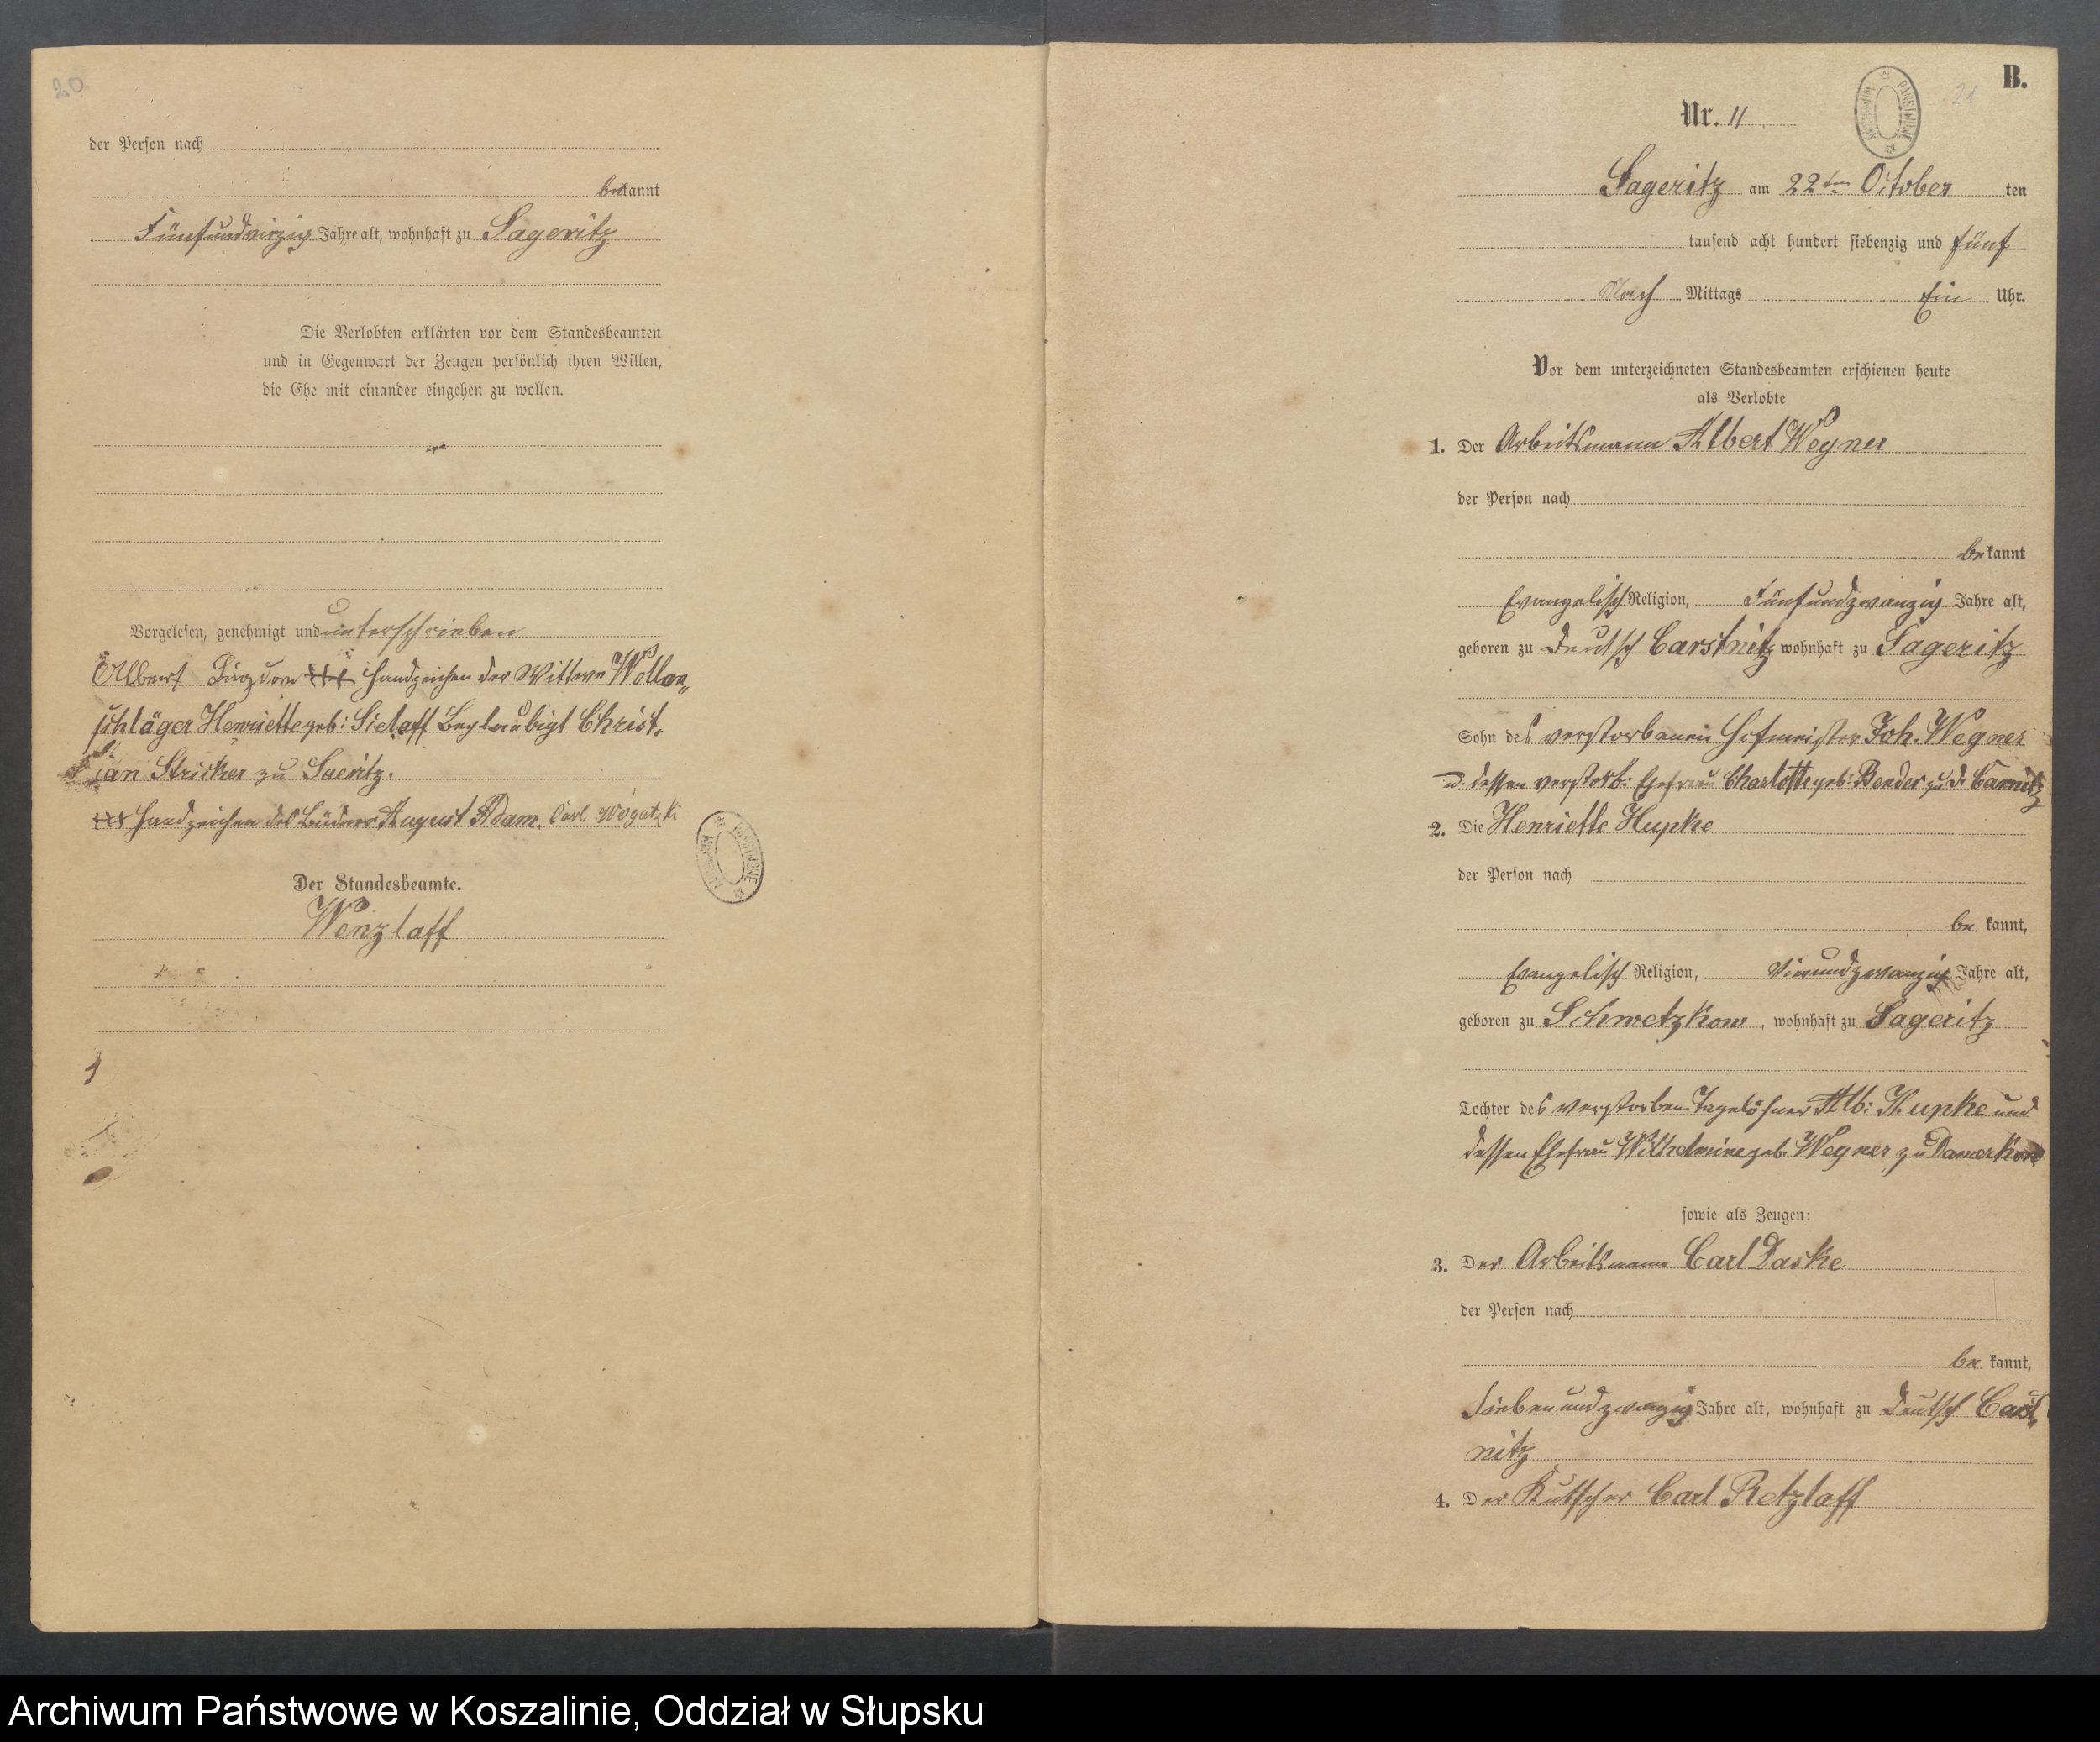 20
der Person nach
bekannt
Fünfundvirzig Jahre alt, wohnhaft zu Sageritz
Die Verlobten erklärten vor dem Standesbeamten
und in Gegenwart der Zeugen persönlich ihren Willen,
die Ehe mit einander eingehen zu wollen.
Vorgelesen, genehmigt und unterschrieben
Albert +++ Handzeichen der Wittwe Wollen„
schläger Henriette geb: Sielaff Beglaubigt Christ.
ian Stricker zu Saeritz.
+++ Handzeichen des Büdner August Adam. Carl Wogatzki
Der Standesbeamte.
Wenzlaff
B.
21
Nr. 11
Sageritz am 22ten October ten
tausend acht hundert siebenzig und fünf
Nach Mittags Ein Uhr.
Vor dem unterzeichneten Standesbeamten erschienen heute
als Verlobte
1. Der Arbeitsmann Albert Wegner
der Person nach
bekannt
Evangelisch Religion, Fünfundzwanzig Jahre alt,
geboren zu Deutsch Carstnitz wohnhaft zu Sageritz
Sohn des verstorbenen Hofmeister Joh. Wegner
u. dessen verstorb: Ehefrau Charlotte geb: Bender zu D. Carnitz
2. Die Henriette Kupke
der Person nach
be kannt,
Evangelisch Religion, Vierundzwanzig Jahre alt,
geboren zu Schwetzkow, wohnhaft zu Sageritz
Tochter des verstorben. Tagelöhner Alb: Kupke und
dessen Ehefrau Wilhelmine geb. Wegner zu Damerkow
sowie als Zeugen:
3. Der Arbeitsmann Carl Paske
der Person nach
be kannt,
Siebenundzwanzig Jahre alt, wohnhaft zu Deutsch Carst„
nitz
4. Der Kutscher Carl Retzlaff
ARCHIWUM PAŃSTWOWE
Archiwum Państwowe w Koszalinie, Oddział w Słupsku